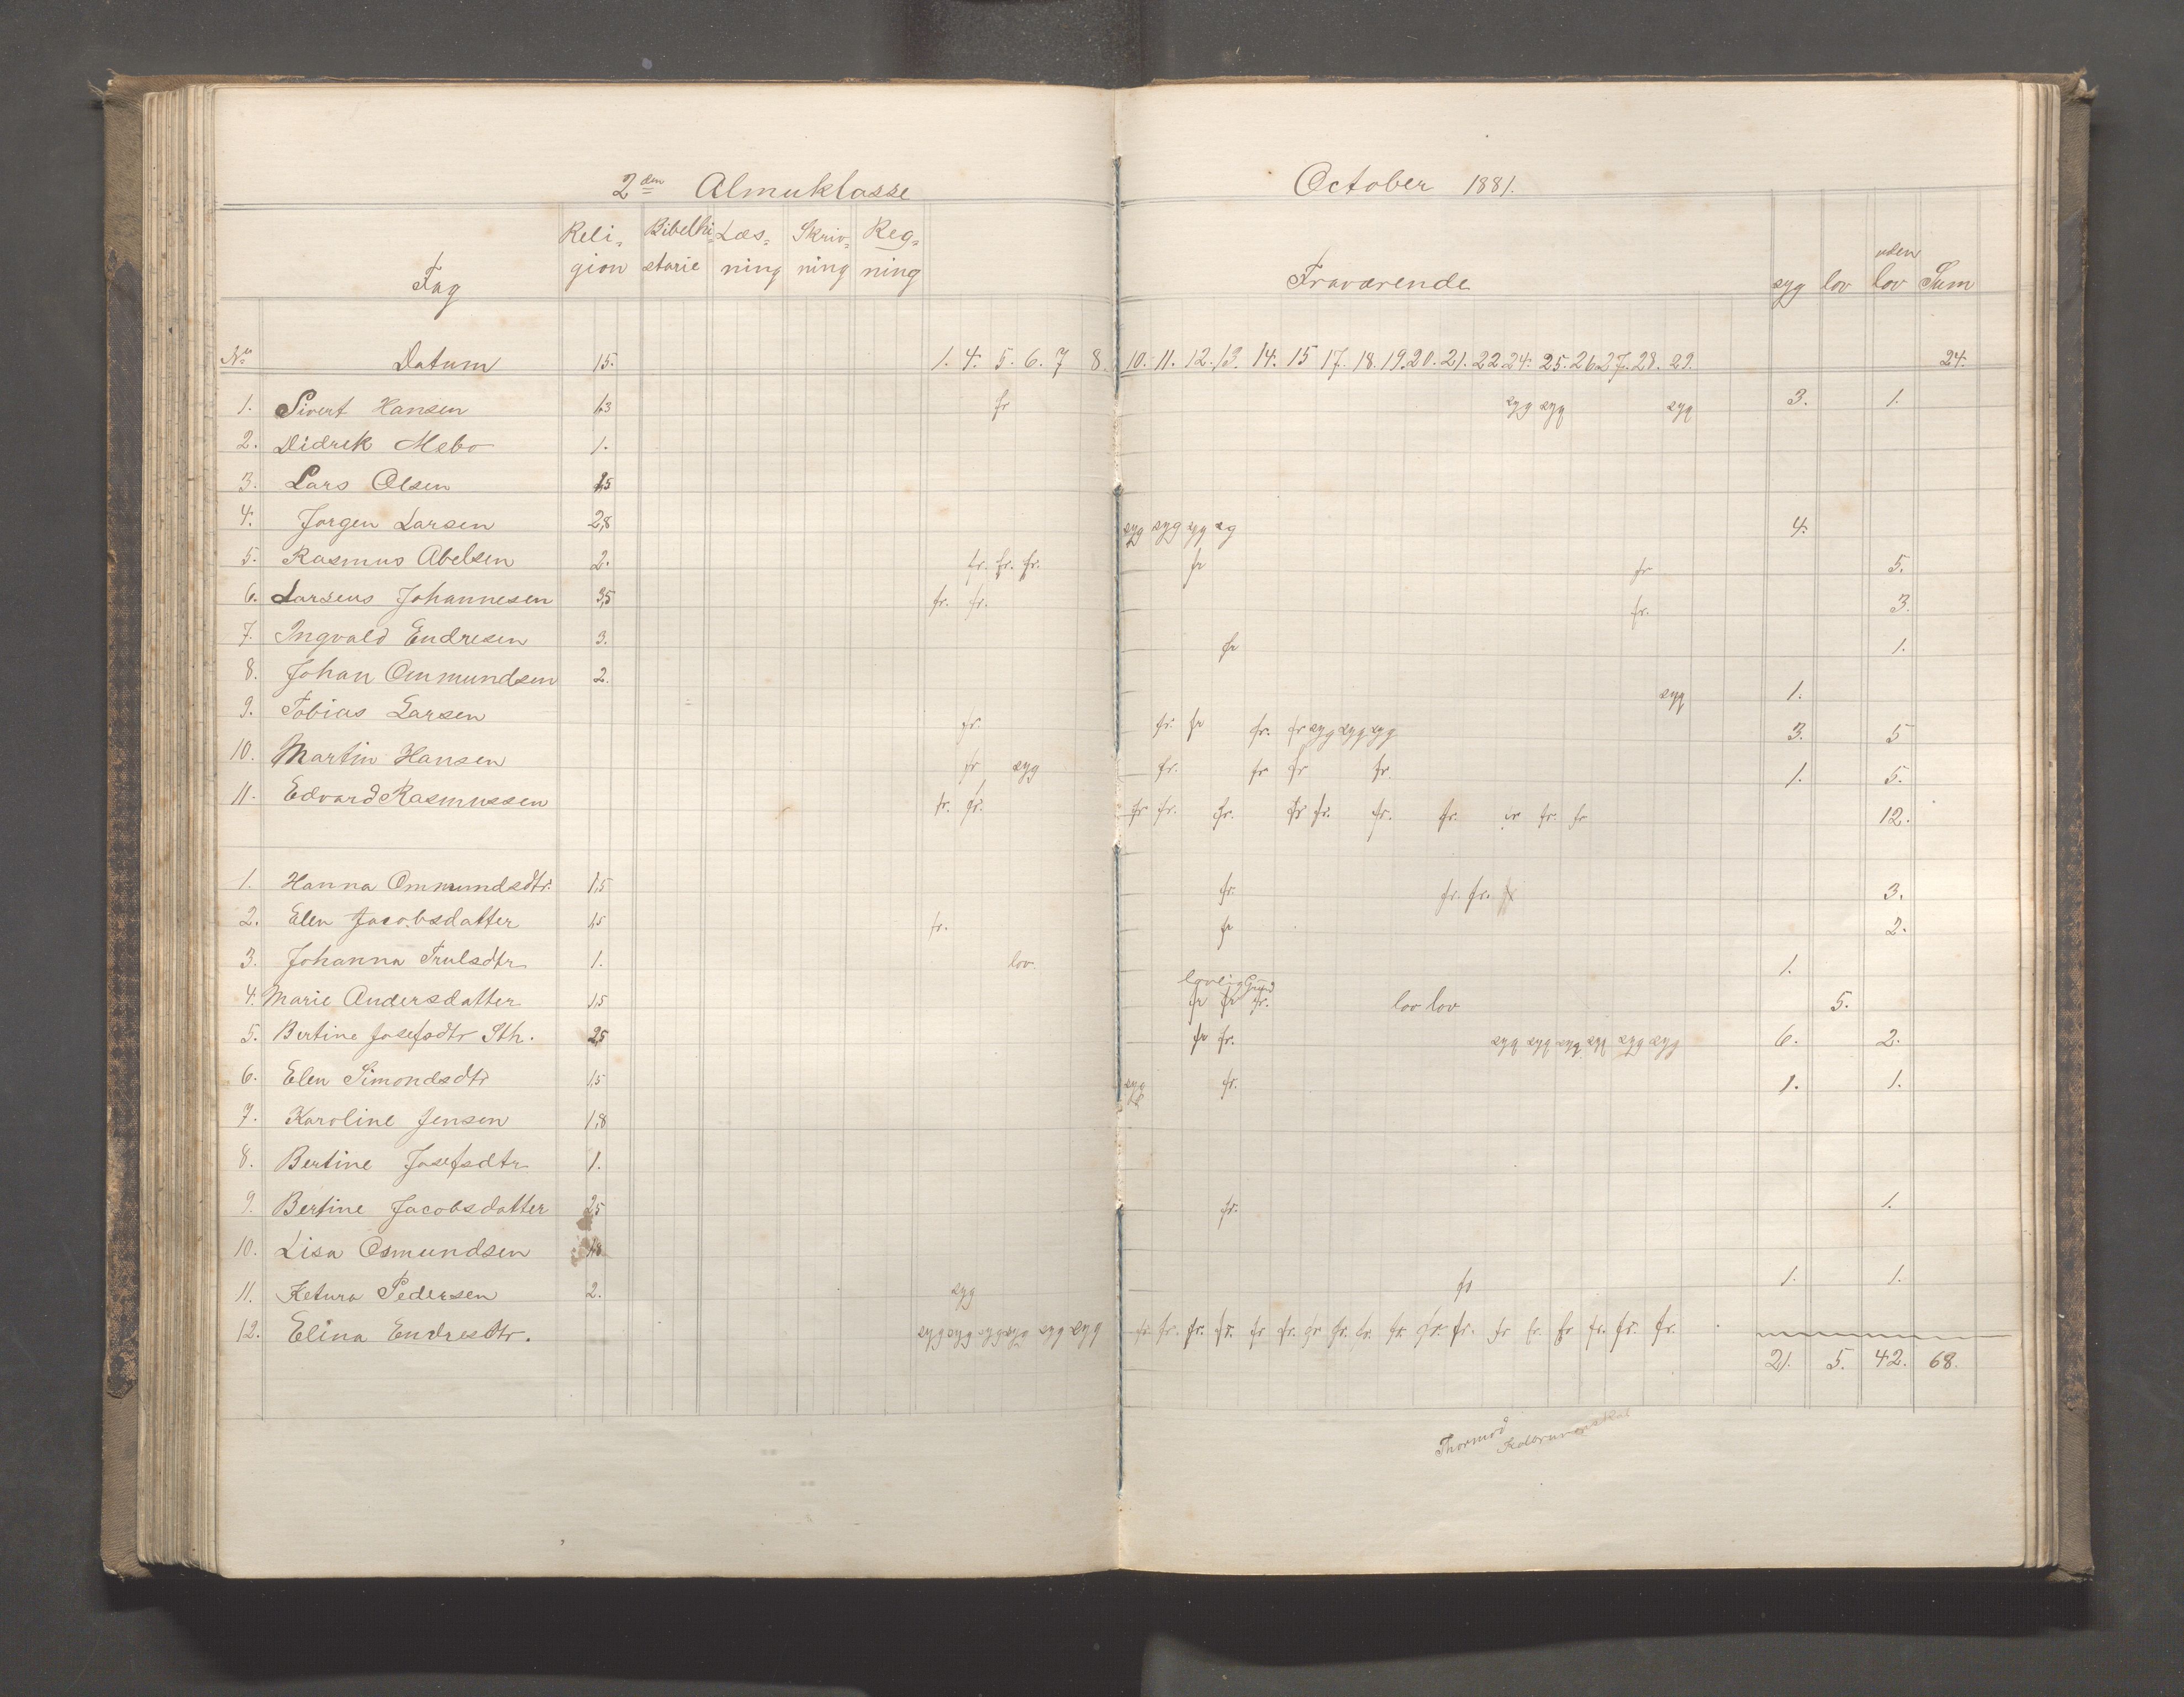 2den Almuklasse October 1881.
Fag Religion Bibelhistorie Læsning Skrivning Regning Fraværende syg lov uden lov Sum
No Datum 15. 1. 4. 5. 6. 7 8. 10. 11. 12. 13. 14. 15 17. 18. 19. 20. 21. 22. 24. 25. 26. 27. 28. 29. 24.
1. Sivert Hansen 1,3 fr syg syg syg 3. 1.
2. Didrik Mebo 1.
3. Lars Olsen 1,5
4. Jorgen Larsen 2,8 syg syg syg sg 4.
5. Rasmus Abelsen 2. fr. fr. fr. fr fr 5.
6. Larseus Johannesen 3,5 fr. fr. fr. 3.
7. Ingvald Endresen 3. fr 1.
8. Johan Ommundsen 2. syg 1.
9. Tobias Larsen fr. fr. fr fr. fr syg syg syg 3. 5
10. Martin Hansen fr syg fr. fr fr fr. 1. 5.
11. Edvard Rasmussen fr. fr. fr fr. fr. fr fr. fr. fr. fr fr. fr 12.
1. Hanna Ommundsdtr. 1,5 fr. fr. fr. 3.
2. Elen Jacobsdatter 1,5 fr. fr 2.
3. Johanna Trulsdtr 1. lov. 1.
lovlig Grund
4. Marie Andersdatter 1,5 fr fr fr. lov lov 5.
5. Bertine Josefsdtr Sth. 2,5 fr fr. syg syg syg syg syg syg 6. 2.
6. Elen Simondsdtr 1,5 syg fr. 1. 1.
7. Karoline Jensen 1,8
8. Bertine Josefsdtr 1.
9. Bertine Jacobsdatter 2,5 fr. 1.
10. Lisa Osmundsen 1,8
11. Ketura Pedersen 2. syg fr 1. 1.
12. Elina Endresdtr. syg syg syg syg syg syg fr. fr. fr. fr. fr fr. fr fr. fr. fr. fr. fr. fr fr. fr fr. fr. fr.
21. 5. 42. 68.
Thormod